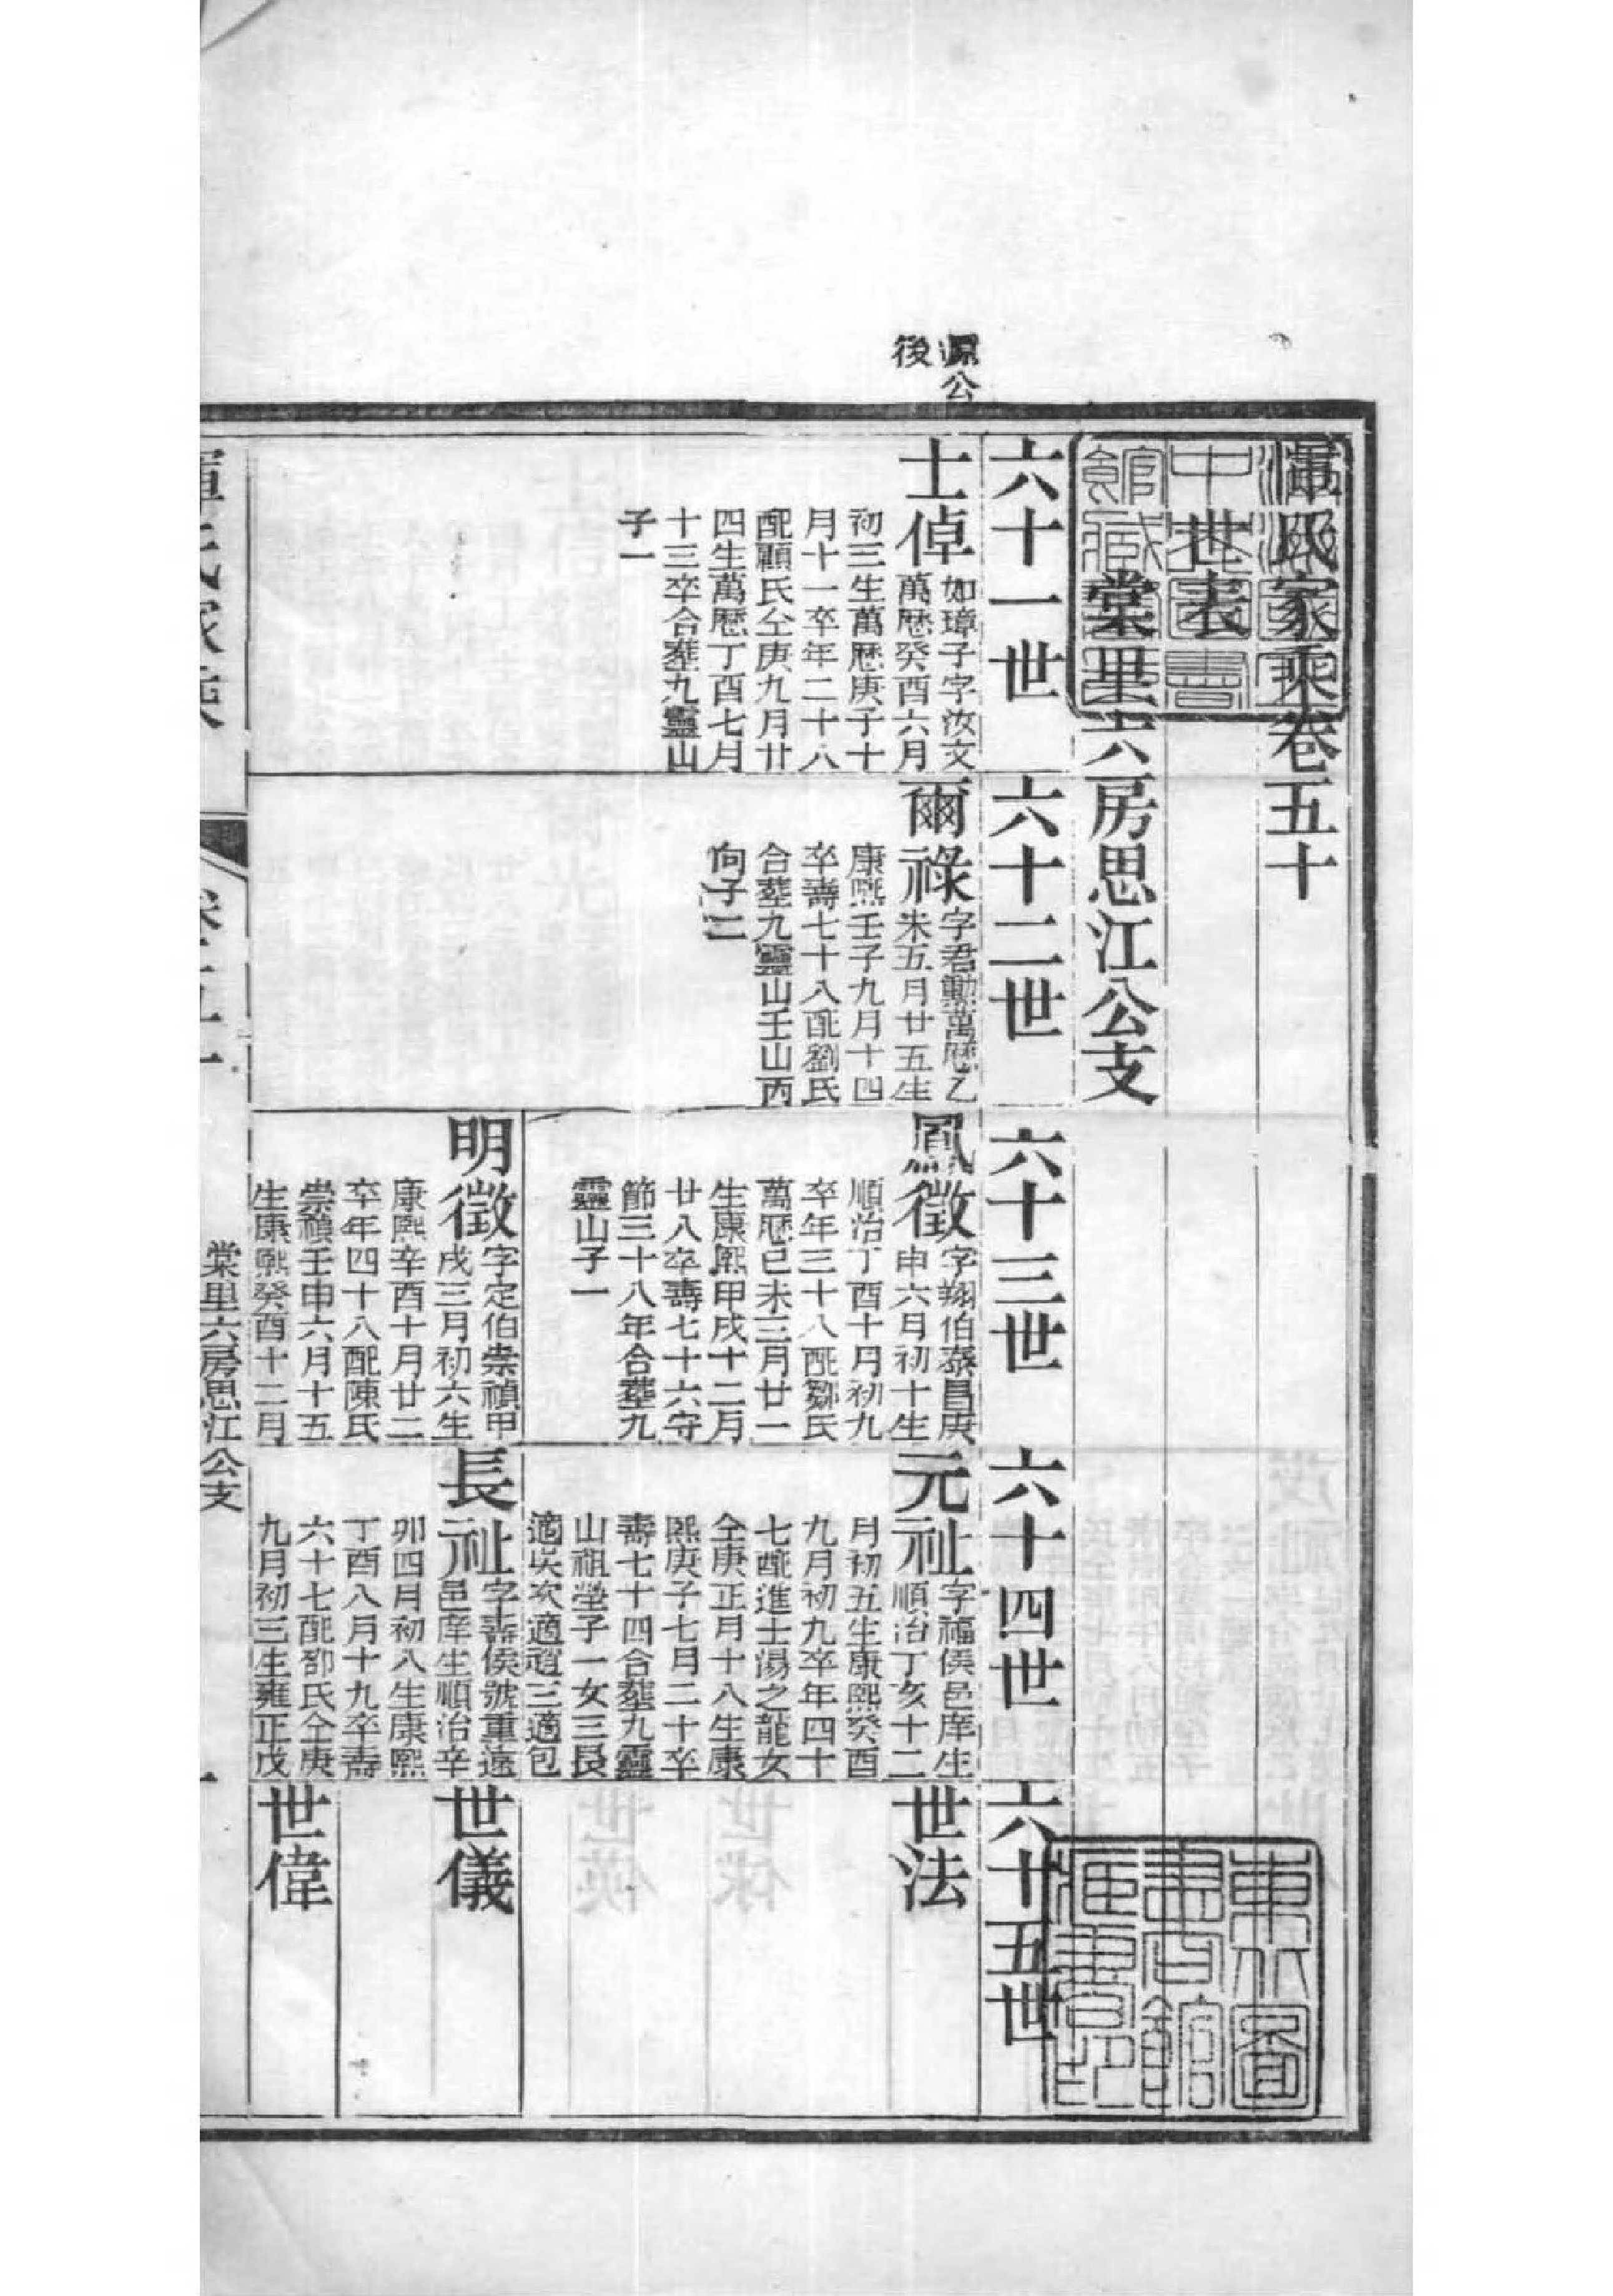 惲氏家乘卷五十
世表
棠里六房思江公支
源公
後
六十一世
士倬
如璋子字汝文
萬歷癸酉六月
初三生萬歷庚子十
月十一卒年二十八
配顧氏仝庚九月廿
四生萬歷丁酉七月
十三卒合塟九靈山
子一
六十二世
爾祿
字君勳萬歷乙
未五月廿五生
康熙壬子九月十四
卒壽七十八配劉氏
合塟九靈山壬山丙
向子二
六十三世
鳳徵
字翔伯泰昌庚
申六月初十生
順治丁酉十月初九
卒年三十八配鄒氏
萬歷己未三月廿一
生康熙甲戌十二月
廿八卒壽七十六守
節三十八年合塟九
靈山子一
明徵
字定伯崇禎甲
戌三月初六生
康熙辛酉十月廿二
卒年四十八配陳氏
崇禎壬申六月十五
生康熙癸酉十二月
六十四世
元祉
字福侯邑庠生
順治丁亥十二
月初五生康熙癸酉
九月初九卒年四十
七配進士湯之龍女
仝庚正月十八生康
熙庚子七月二十卒
壽七十四合塟九靈
山祖塋子一女三長
適吳次適趙三適包
長祉
字壽侯號重遠
邑庠生順治辛
卯四月初八生康熙
丁酉八月十九卒壽
六十七配鄒氏仝庚
九月初三生雍正戊
六十五世
世法
世儀
世偉
惲氏家乘
卷五十
棠里六房思江公支
一
東北圖
書館
藏書印